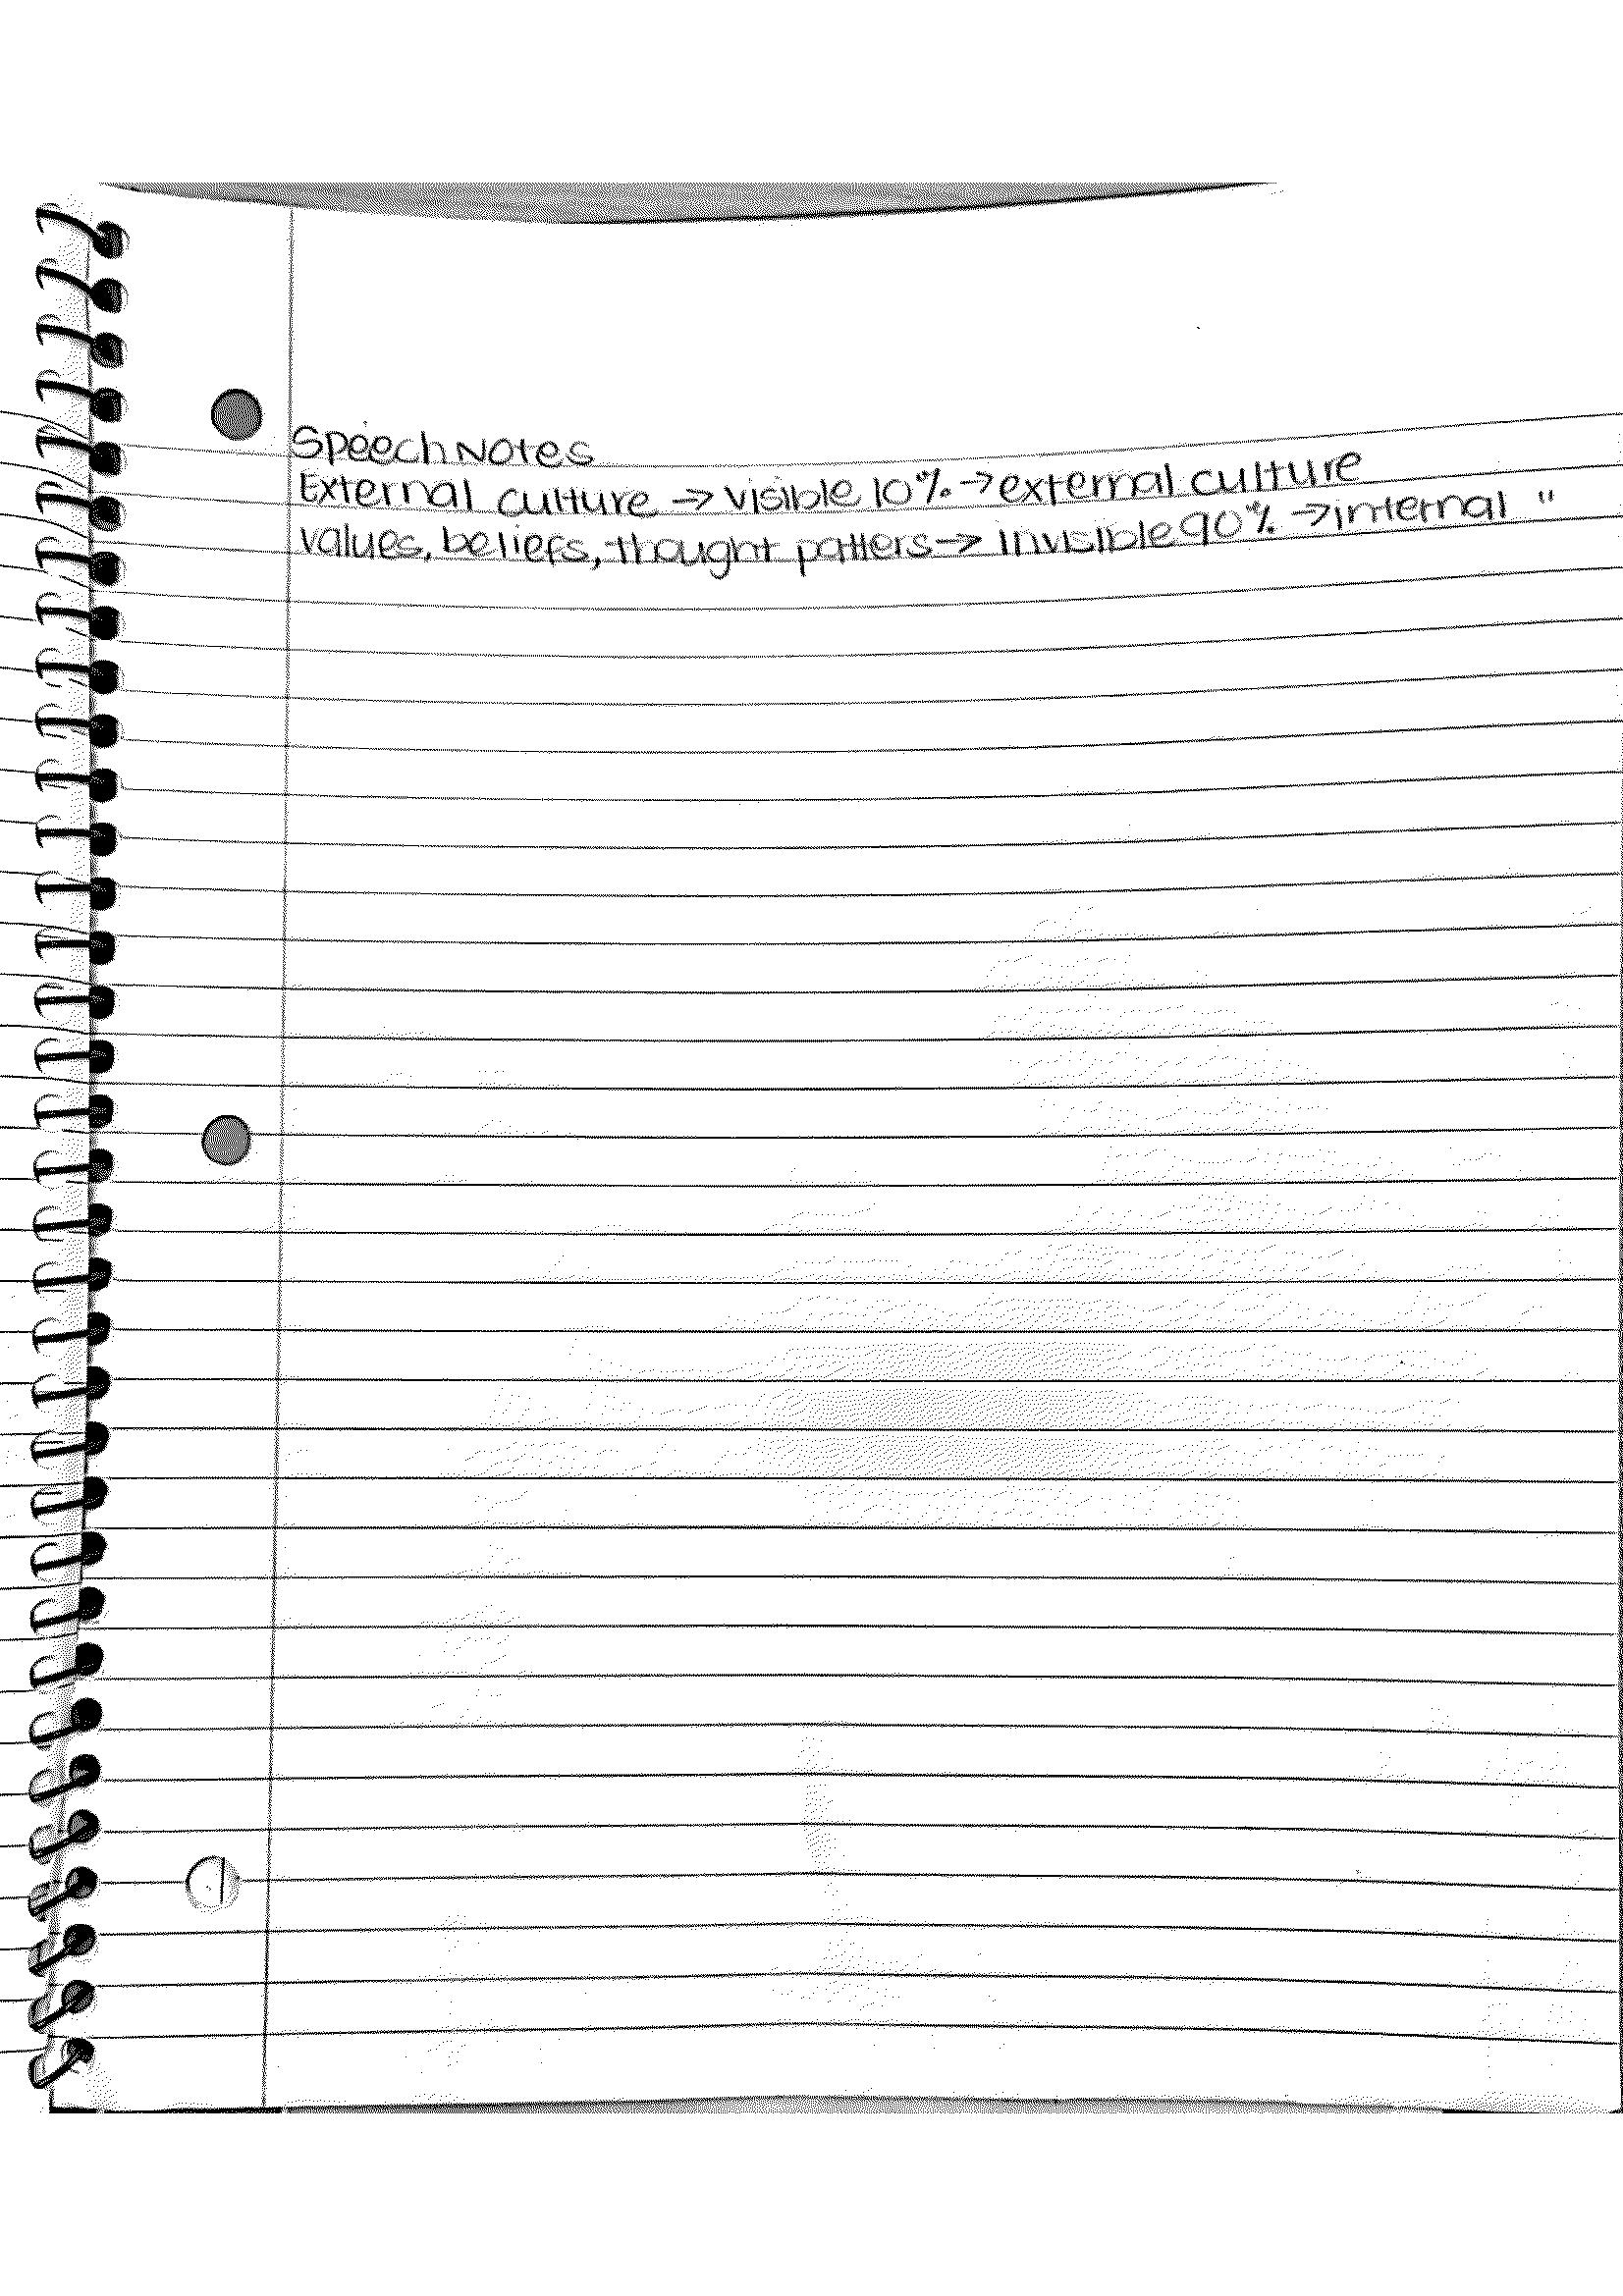 Speech Notes
External culture → visible 10% → external culture
values, beliefs, thought patters → invisible 90% → internal "